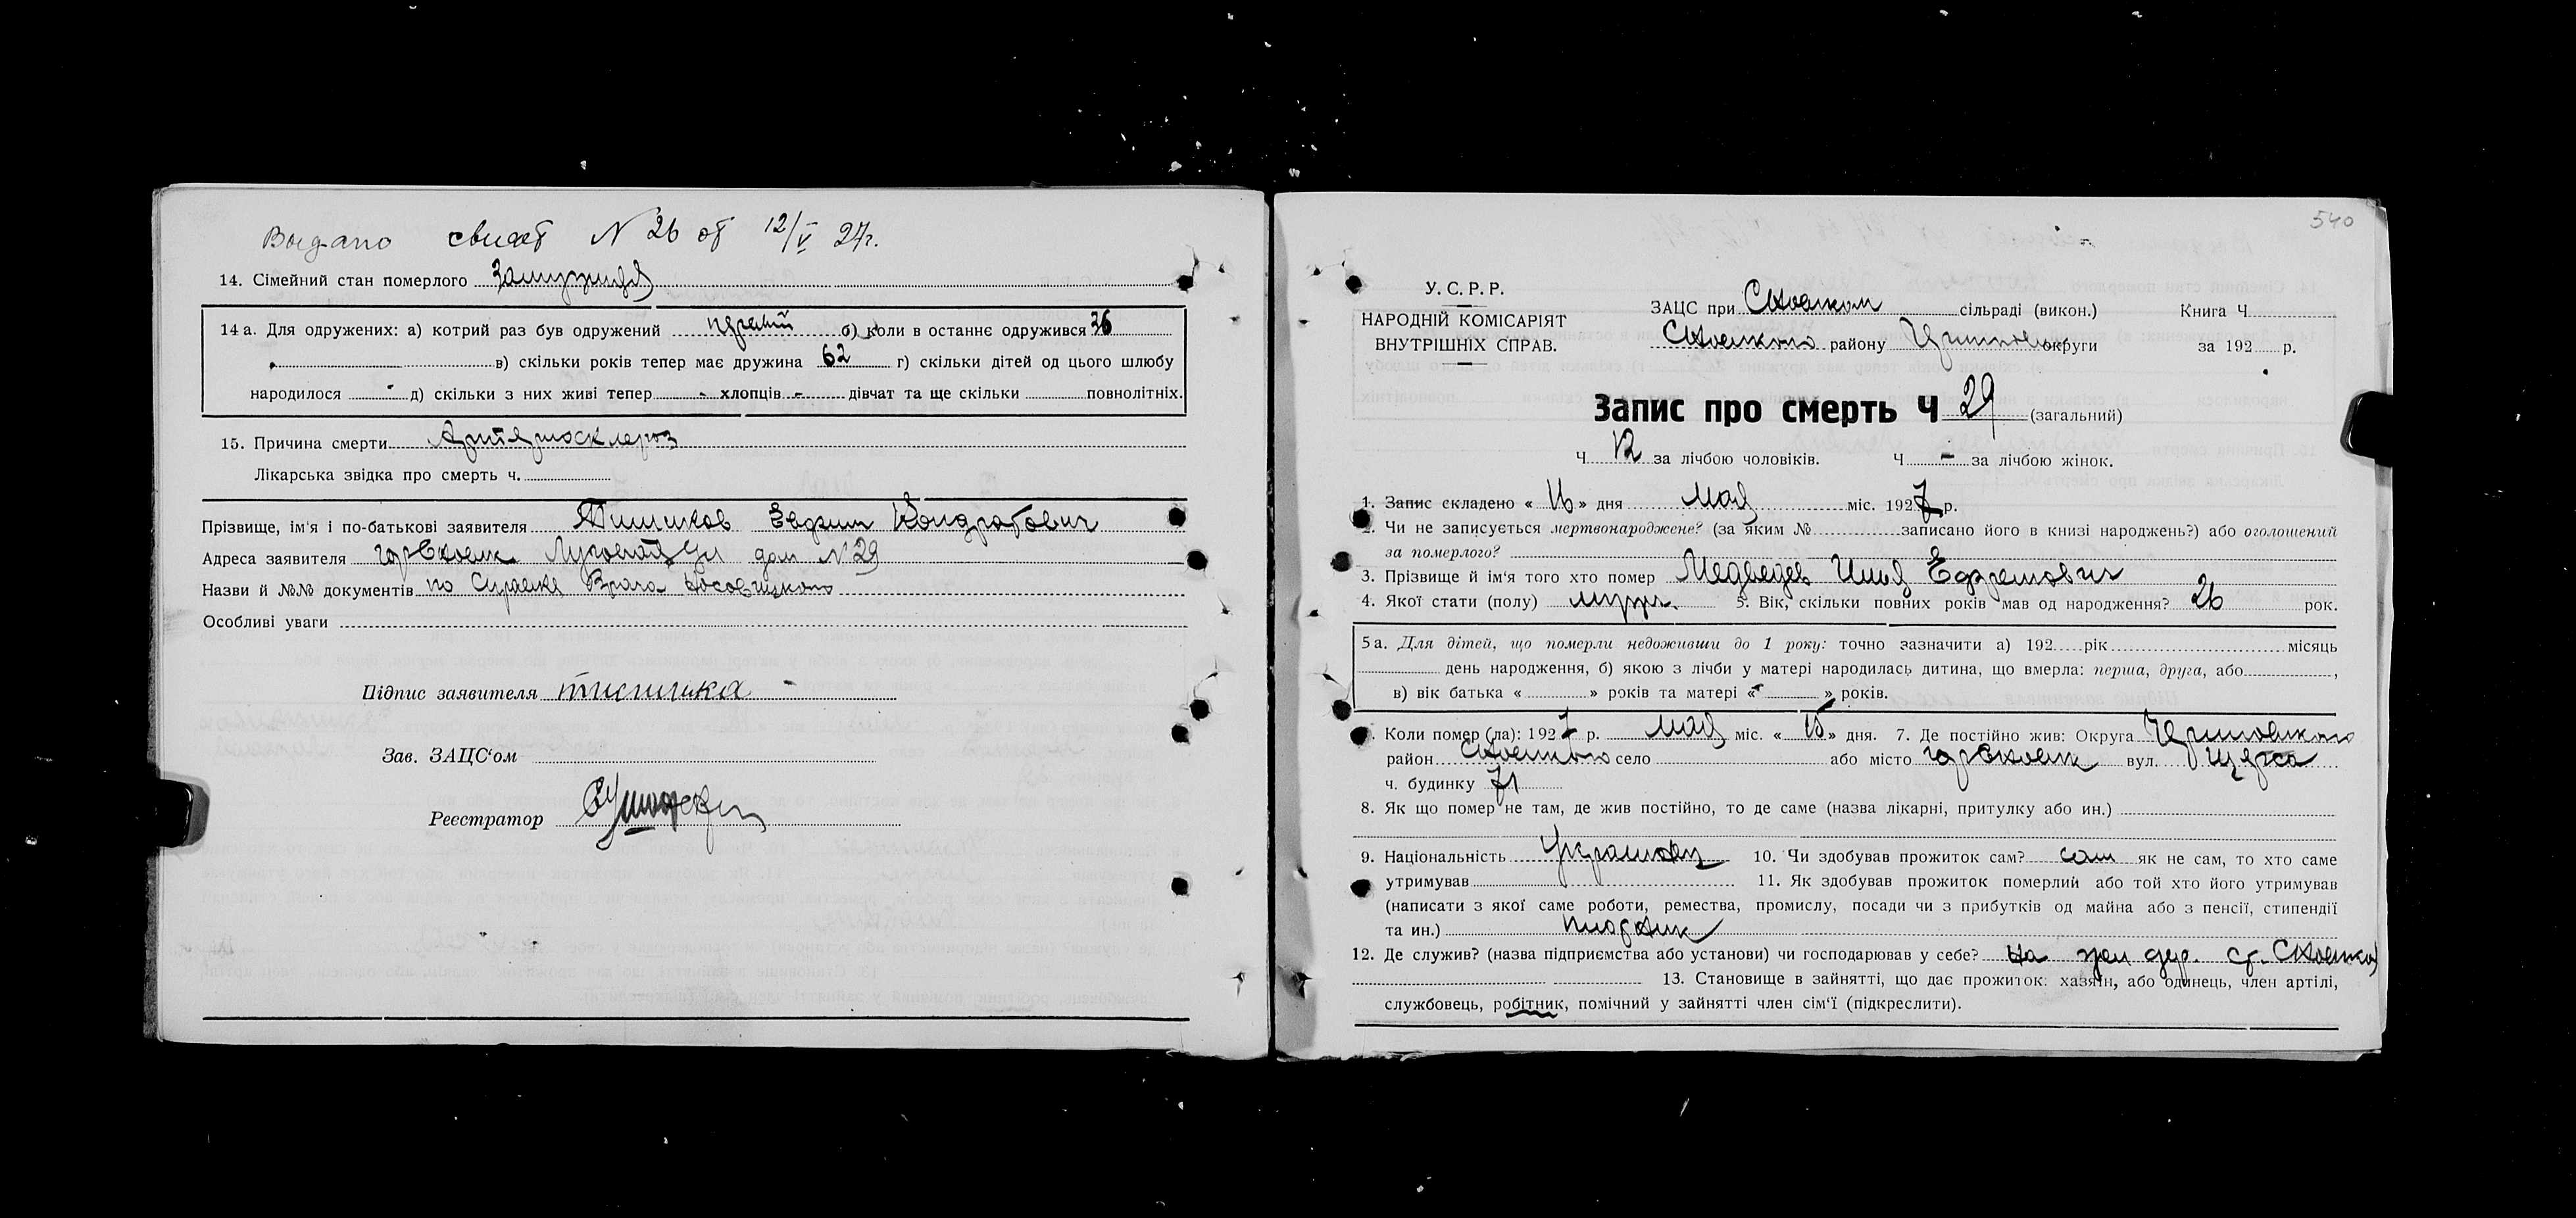 Выдано свидет N 26 от 12/V 27г.
14. Сімейний стан померлого Замужняя
14 а. Для одружених: а) котрий раз був одружений первый б) коли в останнє одружився 36
в) скільки років тепер має дружина 62 г) скільки дітей од цього шлюбу
народилося - д) скільки з них живі тепер - хлопців - дівчат та ще скільки повнолітніх.
15. Причина смерти
Лікарська звідка про смерть ч.
Прізвище, ім'я і по-батькові заявителя Кондратович
Адреса заявителя дом N 29
Назви й №№ документів по Справке Врача
Особливі уваги
Підпис заявителя
Зав. ЗАЦС'ом
Реєстратор
540
У. С. Р. Р.
НАРОДНІЙ КОМІСАРІЯТ
ВНУТРІШНІХ СПРАВ.
ЗАЦС при Сновском сільраді (викон.) Книга Ч
Сновского району округи за 192 р.
Запис про смерть Ч 29 (загальний)
Ч 12 за лічбою чоловіків. Ч - за лічбою жінок.
1. Запис складено « 16 » дня мая міс. 1927 р.
2. Чи не записується мертвонароджене? (за яким № записано його в книзі народжень?) або оголошений
за померлого?
3. Прізвище й ім'я того хто помер Медведев Илья Ефремович
4. Якої стати (полу) мужч. 5. Вік, скільки повних років мав од народження? 26 рок.
5 а. Для дітей, що померли недоживши до 1 року: точно зазначити а) 192 рік місяць
день народження, б) якою з лічби у матері народилась дитина, що вмерла: перша, друга, або ,
в) вік батька « » років та матері « » років.
Коли помер (ла): 1927 р. мая міс. « 15 » дня. 7. Де постійно жив: Округа
район Сновского село або місто гор Сновск вул.
ч. будинку 71
8. Як що помер не там, де жив постійно, то де саме (назва лікарні, притулку або ин.)
9. Національність Украинец 10. Чи здобував прожиток сам? сам як не сам, то хто саме
утримував 11. Як здобував прожиток померлий або той хто його утримував
(написати з якої саме роботи, ремества, промислу, посади чи з прибутків од майна або з пенсії, стипендії
та ин.) плотник
12. Де служив? (назва підприємства або установи) чи господарював у себе? на жел дор. ст. Сновская
13. Становище в зайнятті, що дає прожиток: хазяїн, або одинець, член артілі,
службовець, робітник, помічний у зайнятті член сім'ї (підкреслити).